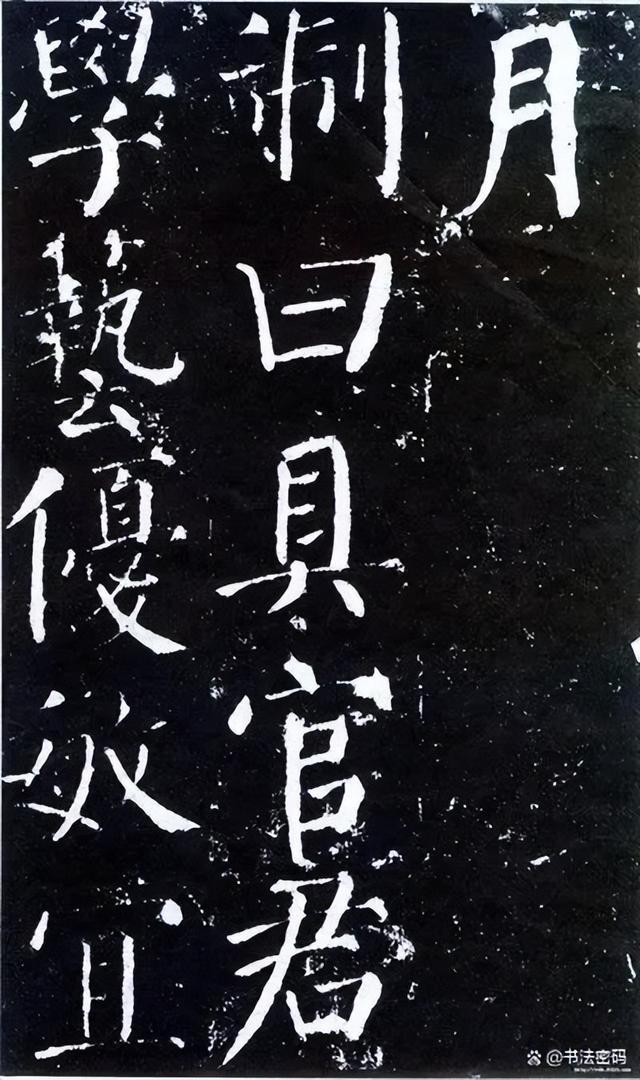 月
制曰具官君
學藝優敏宜
@书法密码